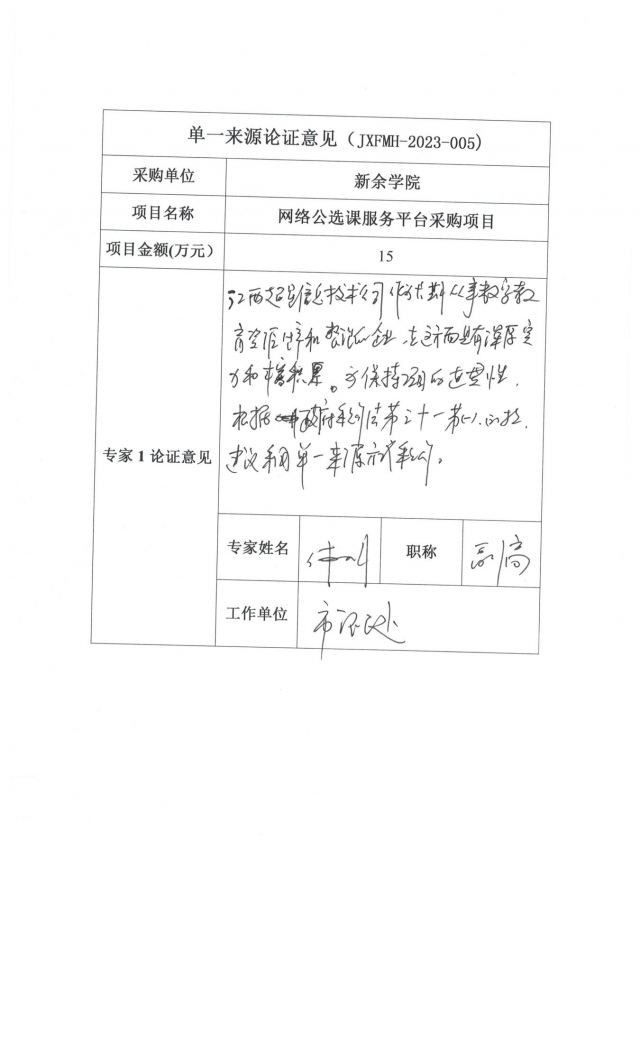 单一来源论证意见（JXFMH-2023-005）
采购单位 新余学院
项目名称 网络公选课服务平台采购项目
项目金额(万元） 15
江西超星信息技术公司作为长期从事数字教
育资源生产和 企业，在这方面具有浑厚实
力和 积累。为保持项目的连贯性，
根据 政府采购法第三十一条
建议采用单一来源方式采购。
专家 1 论证意见
专家姓名 职称 副高
工作单位 市 处